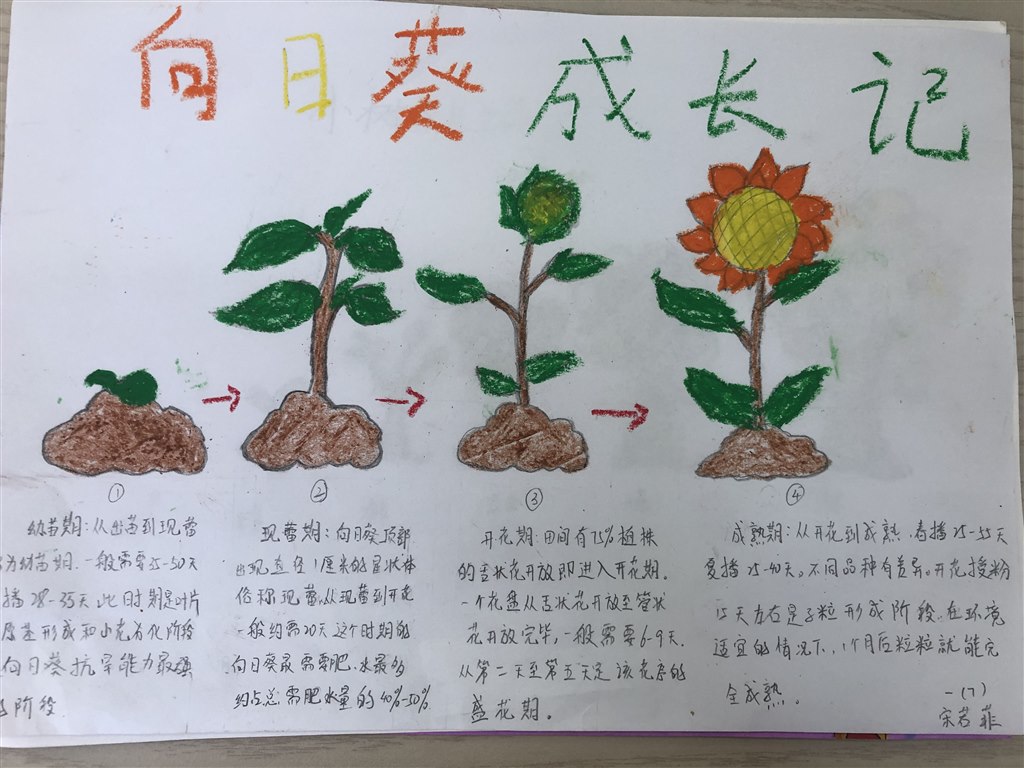 向日葵成长记
①
幼苗期:从出苗到现蕾
为幼苗期.一般需要25-50天
播28-35天此时期是叶片
原基形成和小花省化阶段
向日葵抗旱能力最强
阶段
②
现蕾期:向日葵顶部
出现直径1厘米的星状体
俗称现蕾,从现蕾到开花
一般约需20天这个时期的
向日葵最需要肥.水最多
约占总需肥水量的40%-50%
③
开花期:田间有75%植株
的舌状花开放即进入开花期.
一个花盘从舌状花开放至管状
花开放完毕,一般需要6-9天
从第二天至第五天是该花序的
盛花期。
④
成熟期:从开花到成熟,春播25-55天
夏播25-40天。不同品种有差异。开花授粉
15天左右是子粒形成阶段.在环境
适宜的情况下,1个月后粒粒就能完
全成熟.
一(7)
宋若菲